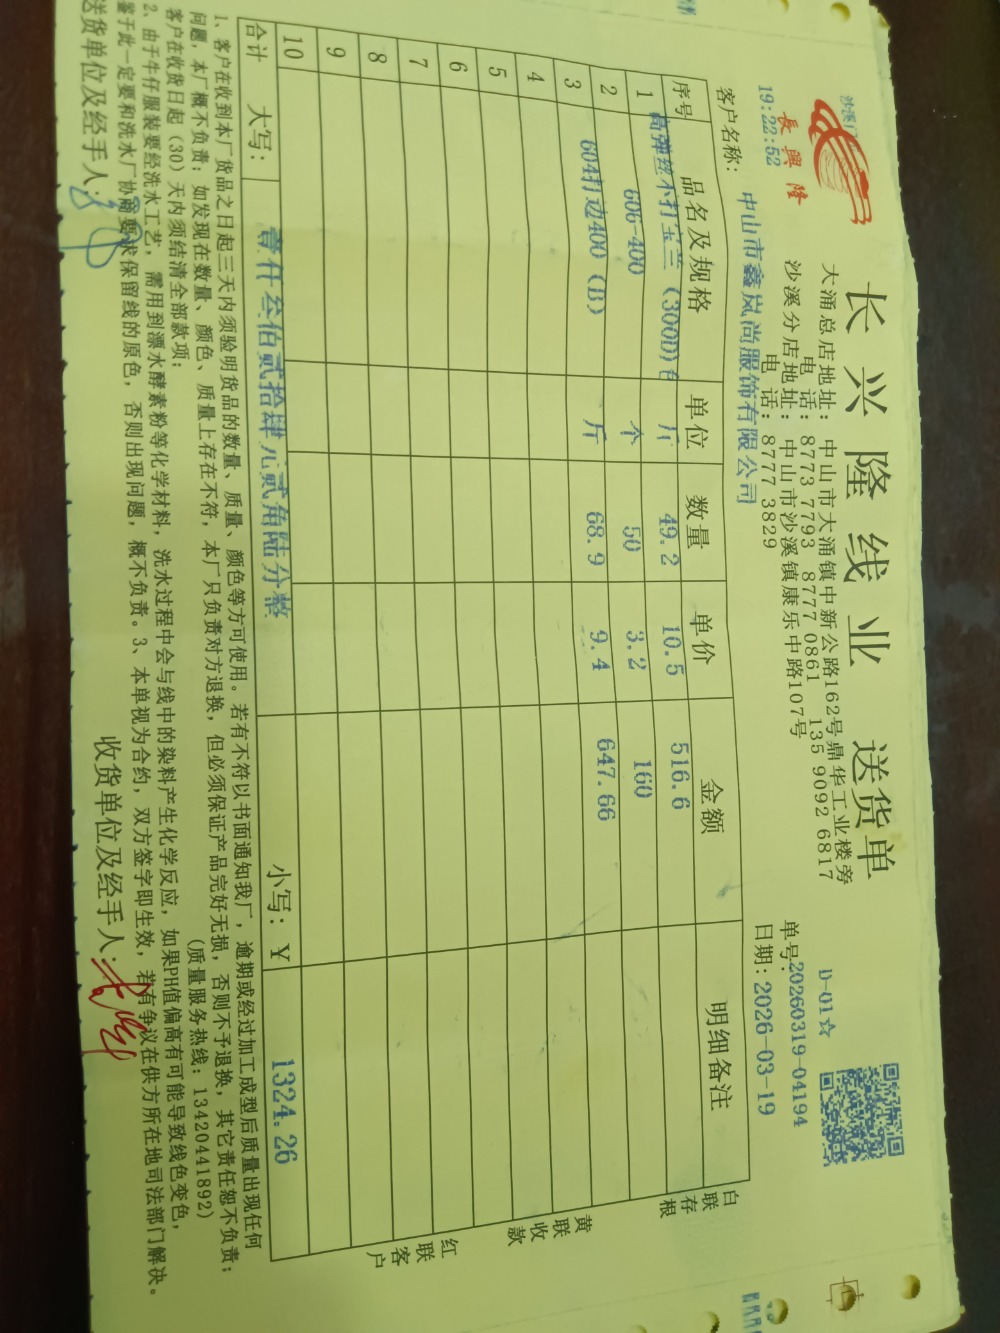 长兴隆线业 送货单
沙溪门
長興隆
19:22:52
大涌总店地址：中山市大涌镇中新公路162号鼎华工业楼旁
电 话：8773 7793 8777 0861 135 9092 6817
沙溪分店地址：中山市沙溪镇康乐中路107号
电 话：8777 3829
D-01☆
单号：20260319-04194
客户名称：中山市鑫岚尚服饰有限公司
日期：2026-03-19
序号 品名及规格 单位 数量 单价 金额 明细备注
1 高弹丝不打宝兰（300D)色 斤 49.2 10.5 516.6
2 606-400 个 50 3.2 160
3 604打边400（B） 斤 68.9 9.4 647.66
4
5
6
7
8
9
10
合计 大写：壹仟叁佰贰拾肆元贰角陆分整 小写：￥ 1324.26
白联存根
黄联收款
红联客户
1、客户在收到本厂货品之日起三天内须验明货品的数量、质量、颜色等方可使用。若有不符以书面通知我厂，逾期或经过加工成型后质量出现任何
问题，本厂概不负责；如发现在数量、颜色、质量上存在不符，本厂只负责对方退换，但必须保证产品完好无损，否则不予退换，其它责任恕不负责；
客户在收货日起（30）天内须结清全部款项； （质量服务热线：13420441892）
2、由于牛仔服装要经洗水工艺，需用到漂水酵素粉等化学材料，洗水过程中会与线中的染料产生化学反应，如果PH值偏高有可能导致线色变色，
鉴于此一定要和洗水厂协商要求保留线的原色，否则出现问题，概不负责。3、本单视为合约，双方签字即生效，若有争议在供方所在地司法部门解决。
送货单位及经手人： 收货单位及经手人：